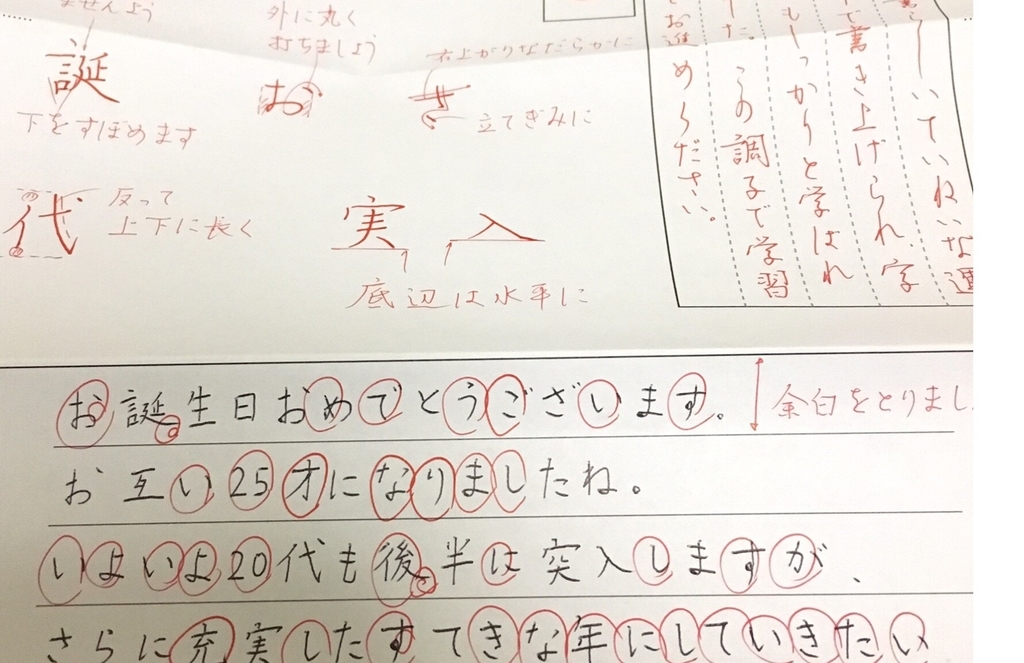 ませんよう
誕
下をすぼめます
外に丸く
打ちましょう
お
右上がりなだらかに
き
立てぎみに
代
反って
上下に長く
実 入
底辺は水平に
いていねいな運
で書き上げられ、字
もしっかりと学ばれ
た。この調子で学習
お進めください。
お誕生日おめでとうございます。
余白をとりまし
お互い25才になりましたね。
いよいよ20代も後半は突入しますが、
さらに充実したすてきな年にしていきたい